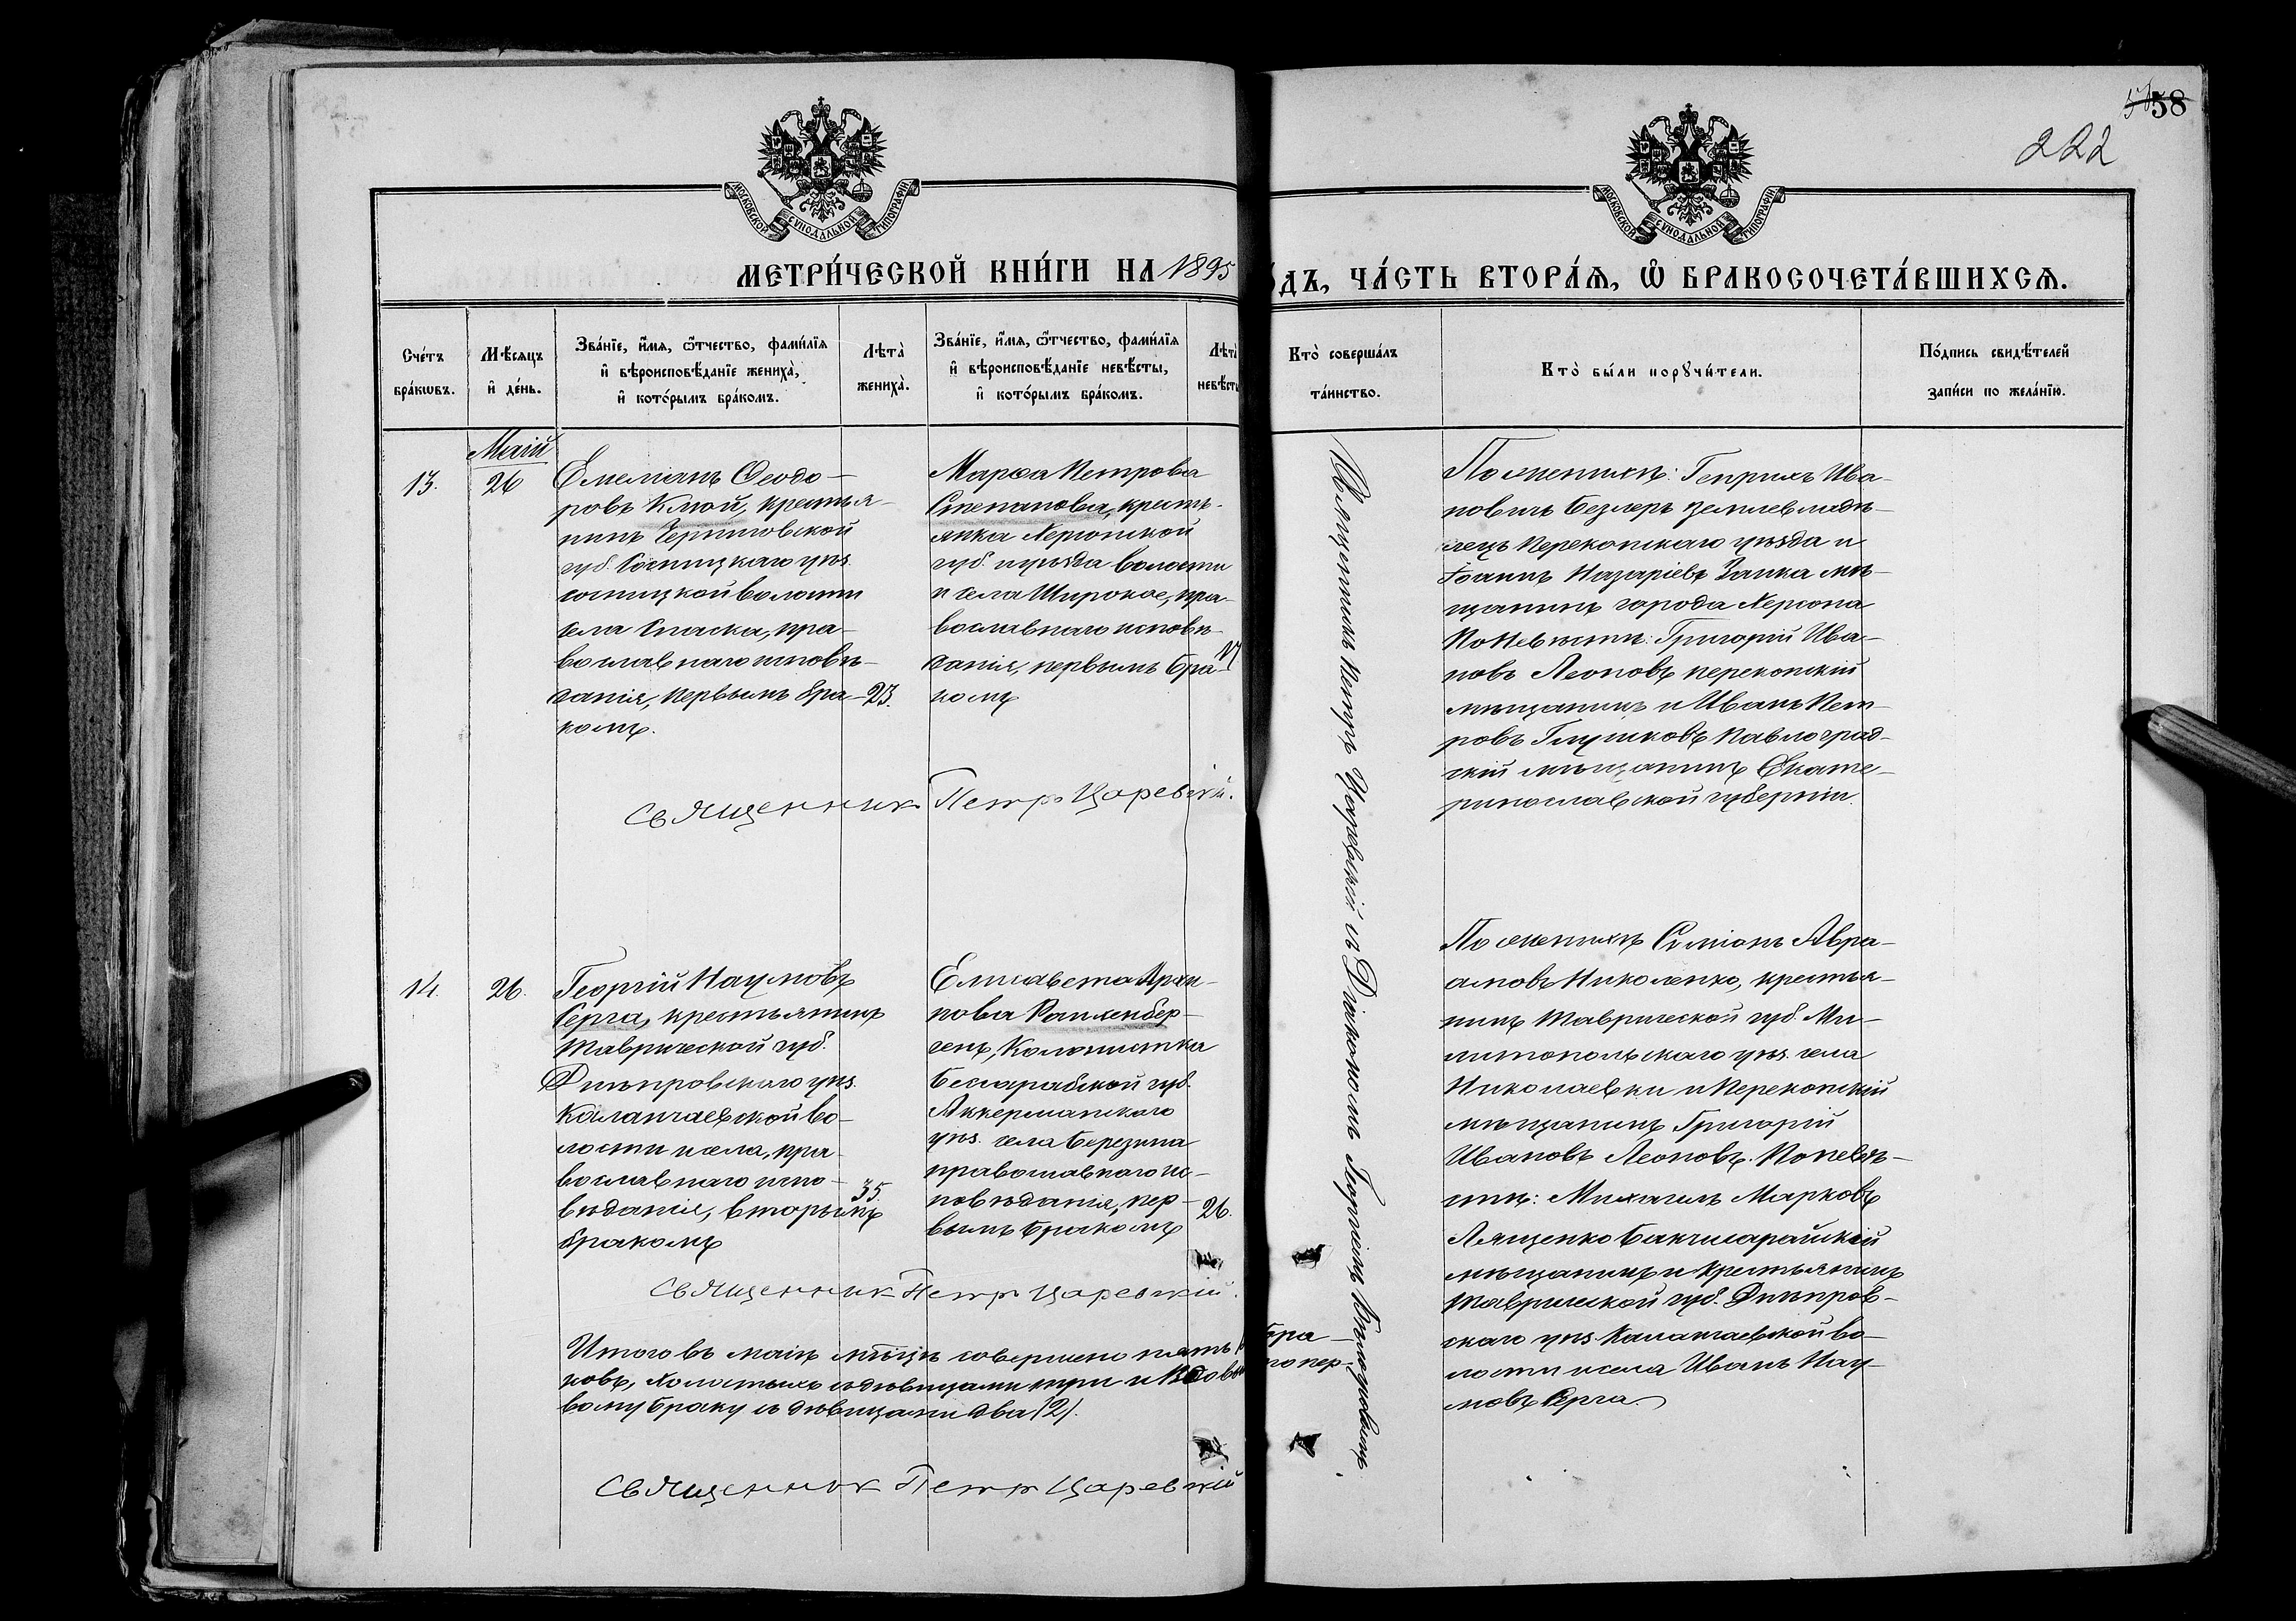 58
222
МОСКОВСКОЙ СѴНОДАЛЬНОЙ ТИПОГРАФІИ
МОСКОВСКОЙ СѴНОДАЛЬНОЙ ТИПОГРАФІИ
МЕТРИ́ЧЕСКОЙ КНИ́ГИ НА 1895
о́дъ, ЧА́СТЬ ВТОРА́Ѧ, Ѽ БРАКОСОЧЕТА́ВШИХСѦ.
Сче́тъ
бра́кѡвъ.
Мѣ́сѧцъ
и҆ де́нь.
Зва́нїе, и҆́мѧ, ѻ҆́тчество, фами́лїѧ
и҆ вѣроисповѣ́данїе жениха̀,
и҆ кото́рымъ бра́комъ.
Лѣта̀
жениха̀.
Зва́нїе, и҆́мѧ, ѻ҆́тчество, фами́лїѧ
и҆ вѣроисповѣ́данїе невѣ́сты,
и҆ кото́рымъ бра́комъ.
Лѣта̀
невѣ́сты
Кто̀ соверша́лъ
та́инство.
Кто̀ бы́ли порꙋчи́тели.
По́дпись свидѣ́телей
за́писи по жела́нїю.
Маій
13.
26
Емеліанъ Ѳеодо-
ровъ Клюй, крестья-
нинъ Черниговской
губ. Сосницкаго уѣз.
сосницкой волости
села Спаска, пра-
вославнаго исповѣ-
данія, первымъ бра-
комъ.
23.
Марѳа Петрова
Степанова, кресть-
янка Херсонской
губ. и уѣзда волости
и села Широкое, пра-
вославнаго исповѣ-
данія, первымъ бра-
комъ
17
Священник Петръ Царевскій.
Священникъ Петръ Царевскій съ Діакономъ Георгіемъ
По женихѣ: Генрихъ Ива-
новичъ Безлеръ землевладѣ-
лецъ Перекопскаго уѣзда и
Іоаннъ Назаріевъ Заика мѣ-
щанинъ города Херсона
По Невѣстѣ: Григорій Ива-
новъ Леоновъ перекопскій
мѣщанинъ и Иванъ Пет-
ровъ Глушковъ Павлоград-
скій мѣщанинъ Екате-
ринославской губерніи.
14.
26.
Георгій Наумовъ
Серга, крестьянинъ
Таврической губ.
Днѣпровскаго уѣз.
Каланчаевской во-
лости и села, пра-
вославнаго испо-
вѣданія, вторымъ
бракомъ
35.
Елисавета
нова
генъ, Колонистка
Бессарабской губ.
Аккерманскаго
уѣз. села Березина
православнаго ис-
повѣданія, пер-
вымъ бракомъ
26.
Священник Петръ Царевскій.
По женихѣ Симіонъ Авра-
амовъ Николенко, крестья-
нинъ Таврической губ. Ме-
литопольскаго уѣз. села
Николаевки и Перекопскій
мѣщанинъ Григорій
Ивановъ Леоновъ. По невѣ-
стѣ: Михаилъ Марковъ
Лященко Бахчисарайскій
мѣщанинъ и крестьянинъ
Таврической губ. Днѣпров-
скаго уѣз. Каланчаевской во-
лости и села Иванъ Нау-
мовъ Серга.
Итого въ маіѣ мѣсяцѣ совершено пять бра-
ковъ, холостыхъ съ дѣвицами три и по пер-
вому браку съ дѣвицами два (2).
Священник Петръ Царевскій